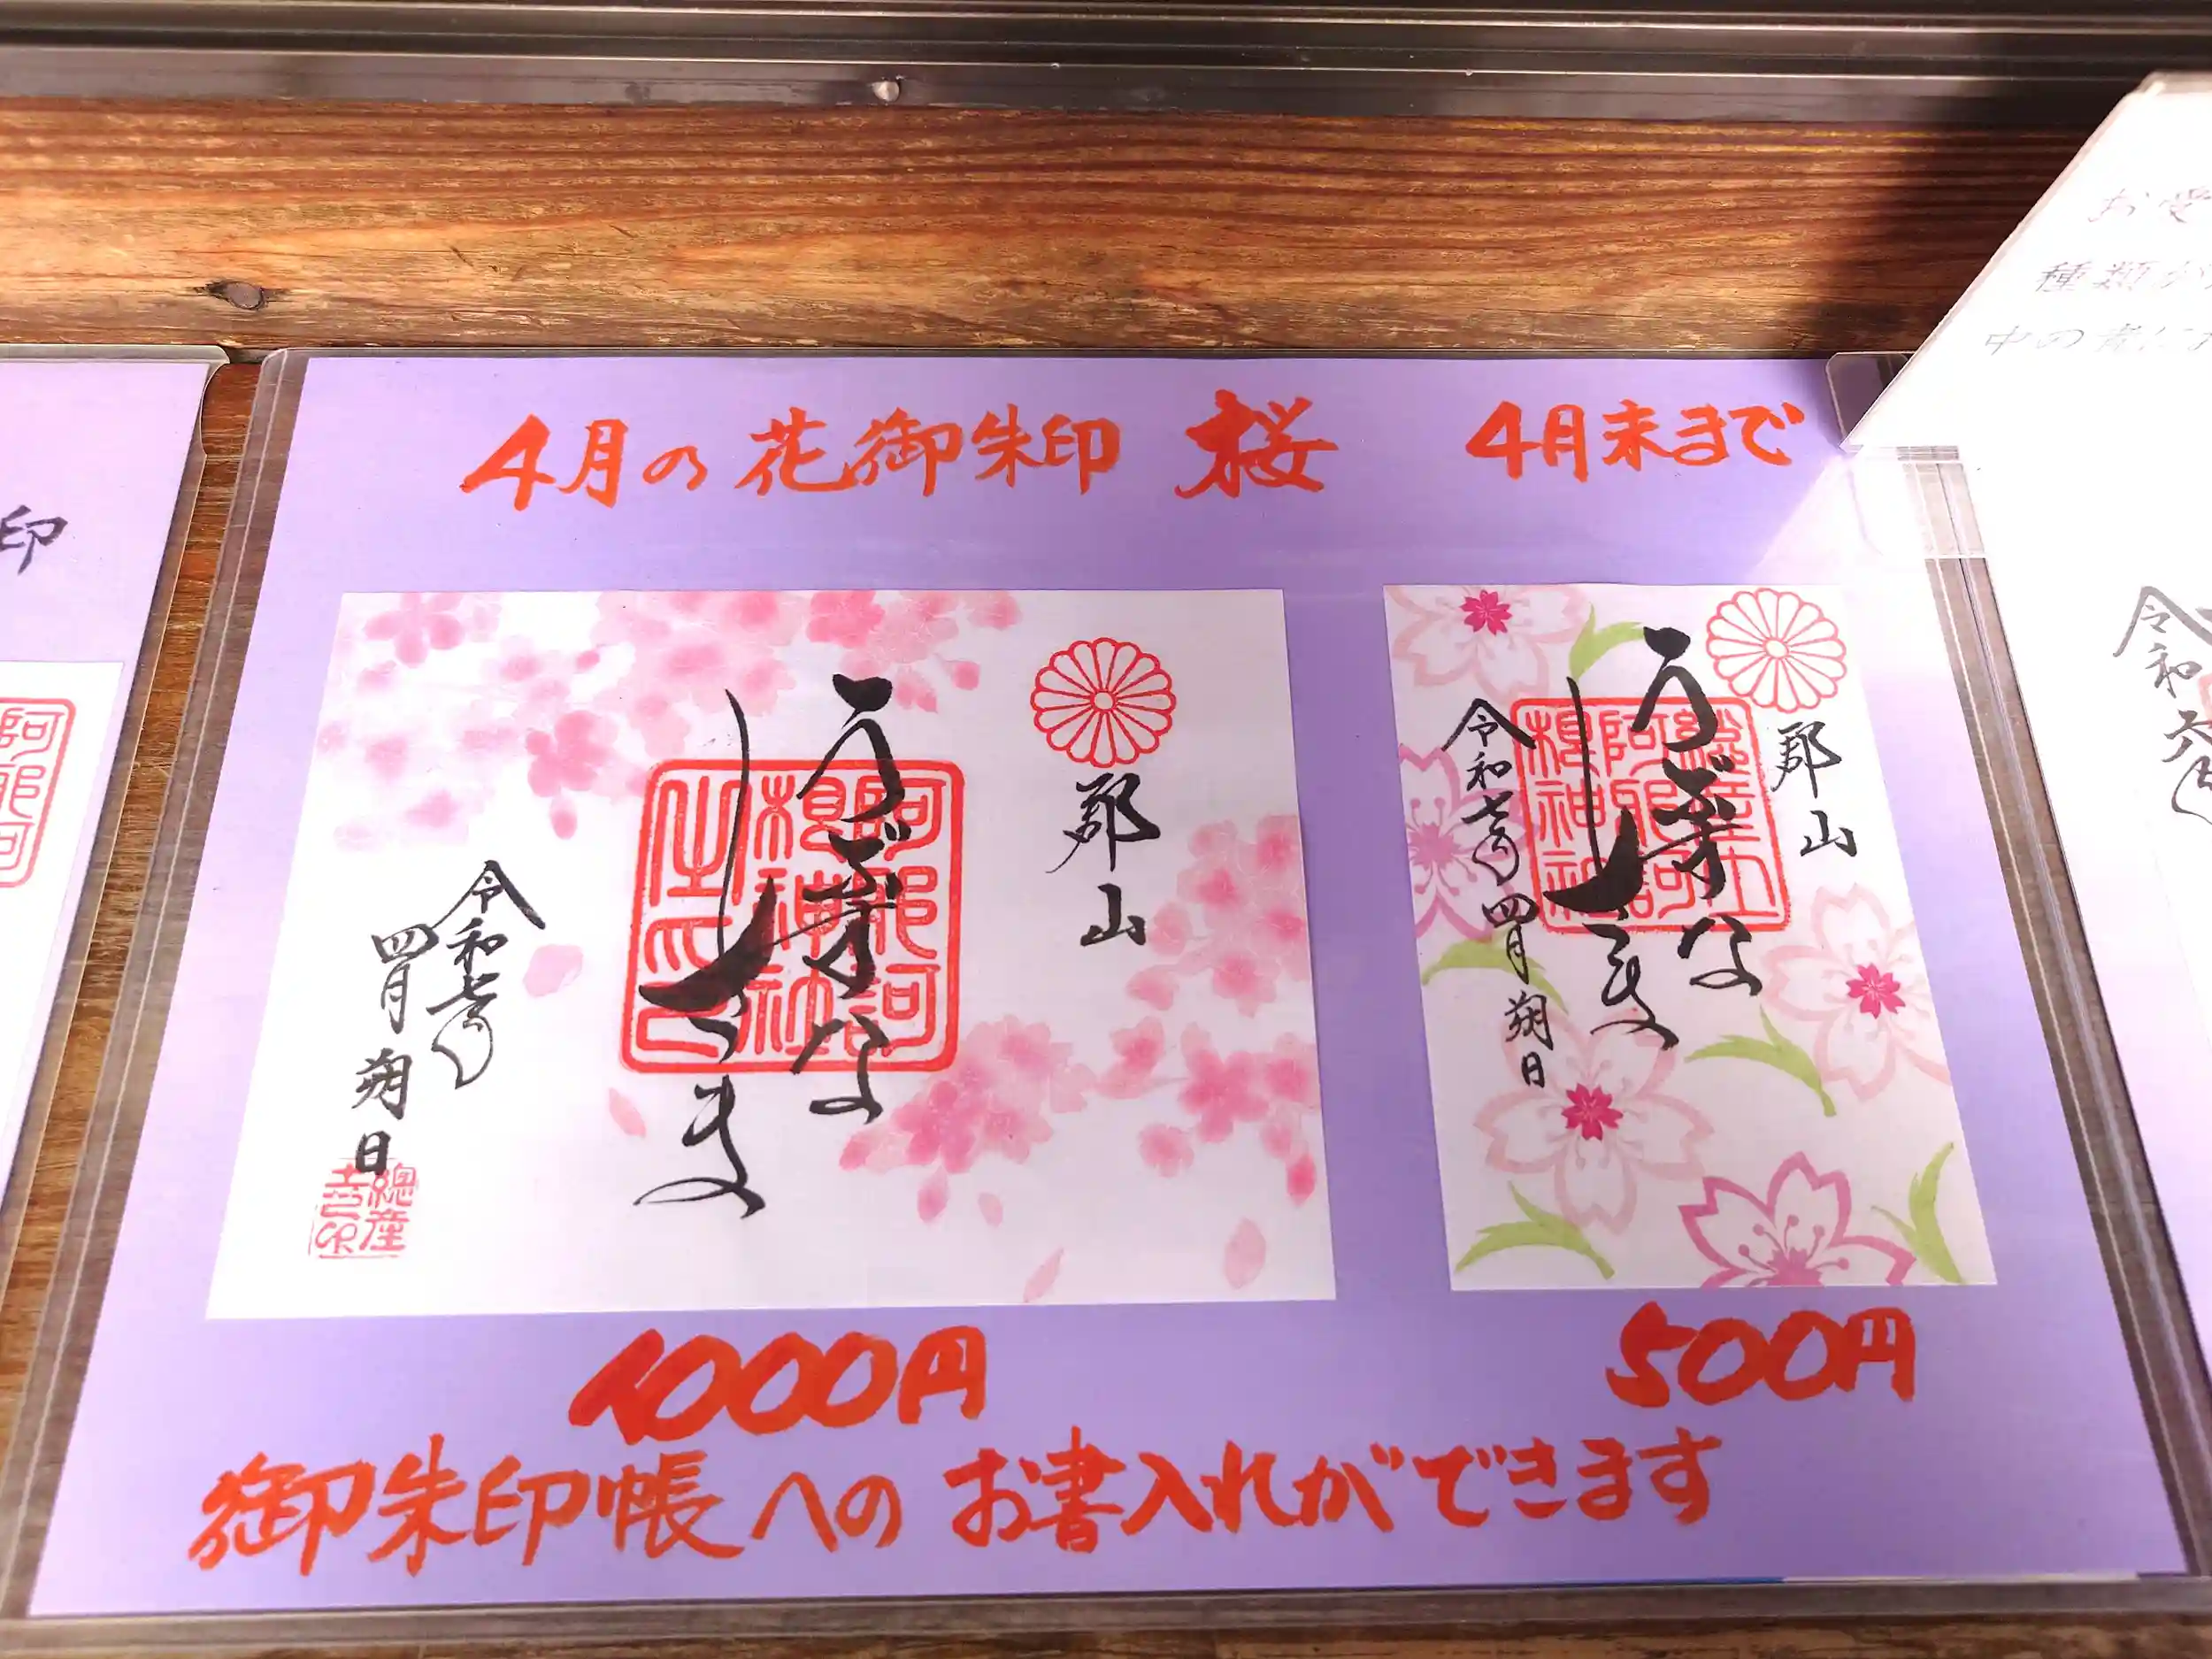 4月の花御朱印 桜 4月末まで
郡山
うぶすな
しさま
令和七年
四月朔日
阿邪訶
根神社
之印
郡山
うぶすな
しさま
令和七年四月朔日
総産土
阿邪訶
根神社
1000円
500円
御朱印帳へのお書入れができます
印
種類が
中の者に
令和六